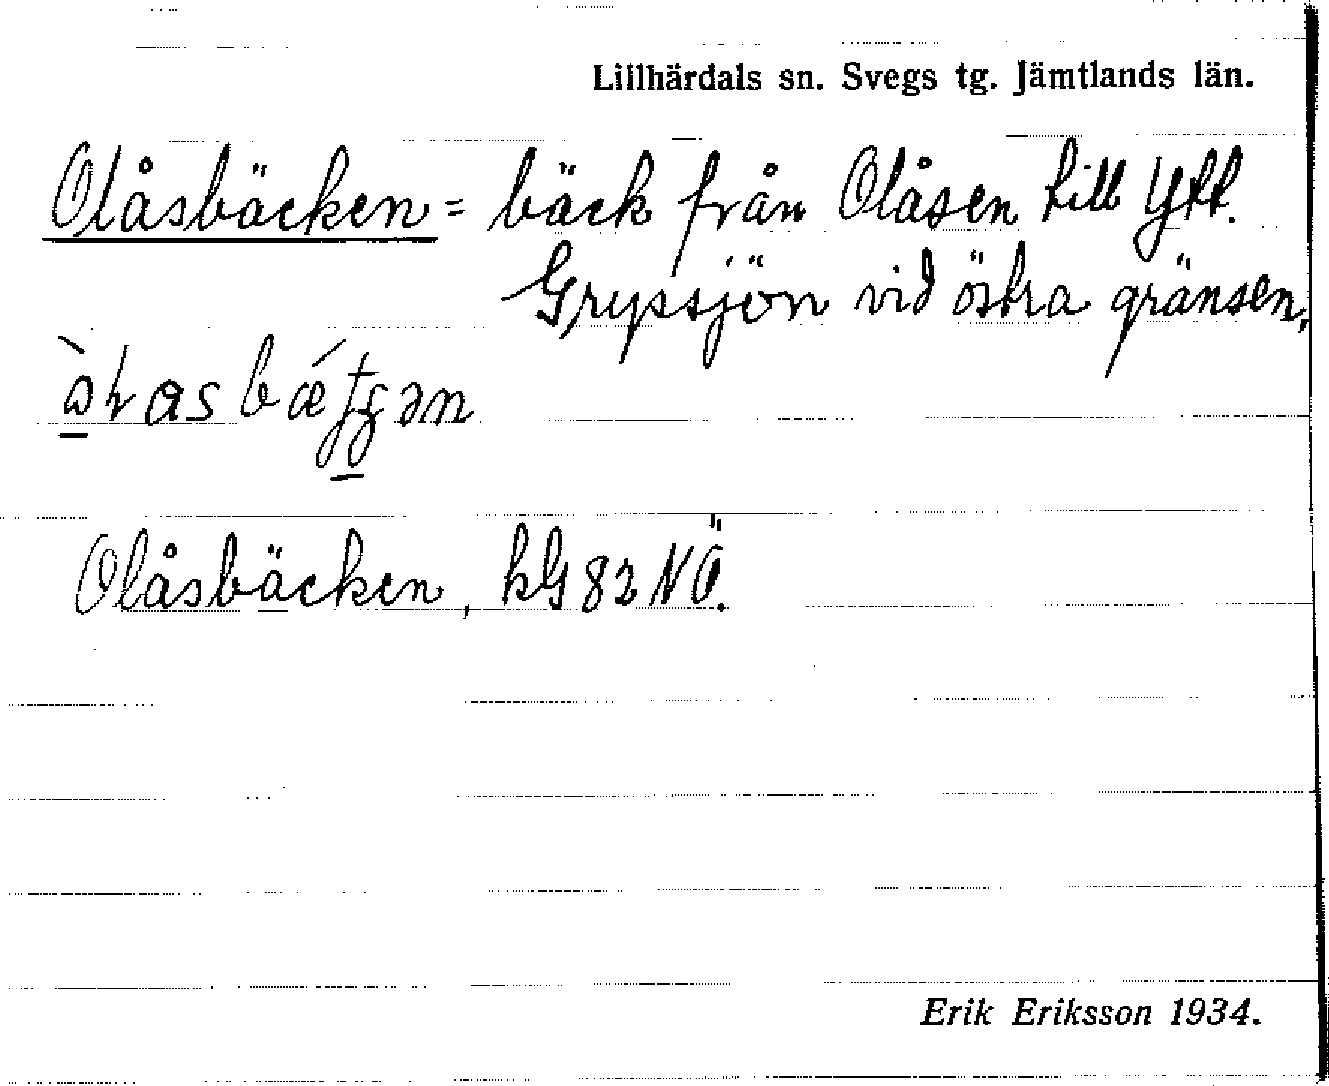 Lillhärdals sn. Svegs tg. Jämtlands län.
Olåsbäcken = bäck från Olåsen till Ytt.
Gryssjön vid östra gränsen,
Olåsbäcken, kG 82 NÖ.
Erik Eriksson 1934.